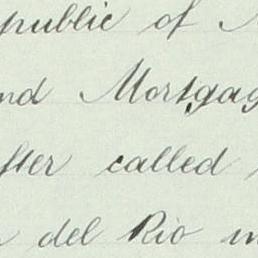 public of
nd Mortgag
fter called
del Rio in